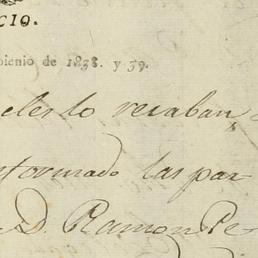 CIO.
bienio de 1838. y 39.
eles lo recaban
nformado las par
D. Ramon Pe